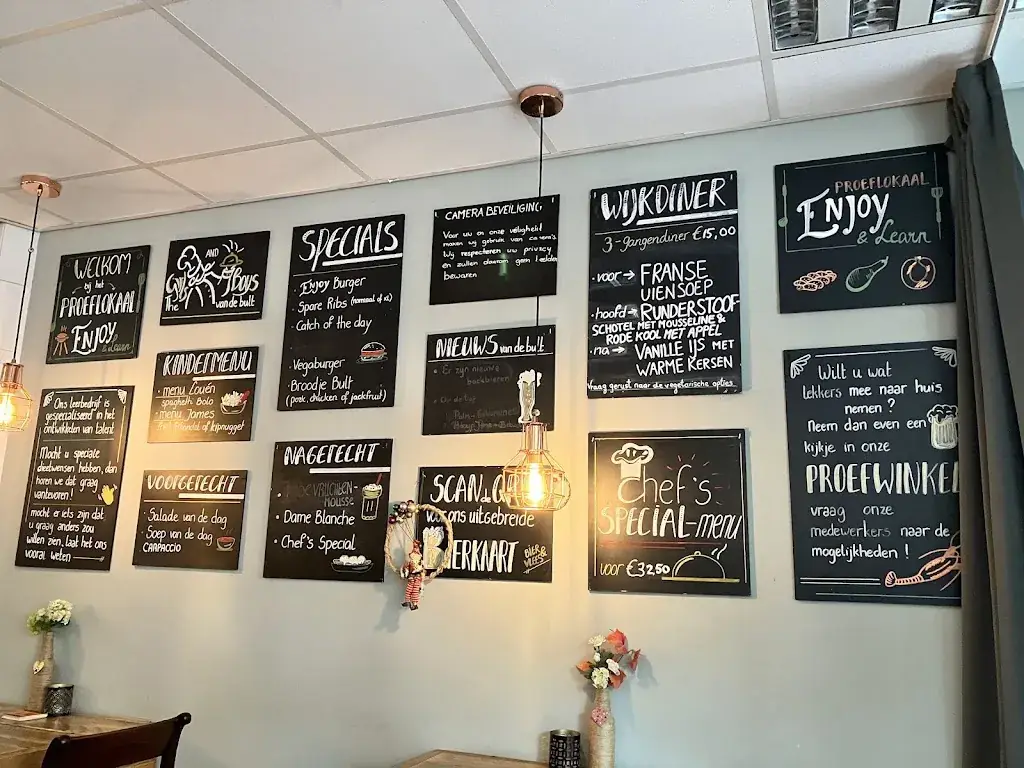 WELKOM
bij het
PROEFLOKAAL
ENJOY
& Learn
AND
The Boys
van de bult
SPECIALS
· Enjoy Burger
· Spare Ribs (normaal of xl)
· Catch of the day
· Vegaburger
· Broodje Bult
(pork, chicken of jackfruit)
CAMERA BEVEILIGING
Voor uw en onze veiligheid
maken wij gebruik van camera's.
Wij respecteren uw privacy
en zullen daarom geen beelden
bewaren
WIJKDINER
3-gangendiner €15,00
· voor → FRANSE
UIENSOEP
· hoofd → RUNDERSTOOF
SCHOTEL MET MOUSSELINE &
RODE KOOL MET APPEL
· na → VANILLE IJS MET
WARME KERSEN
Vraag gerust naar de vegetarische opties
PROEFLOKAAL
ENJOY
& Learn
Ons leerbedrijf is
gespecialiseerd in het
ontwikkelen van talent
Mocht u speciale
dieetwensen hebben, dan
horen we dat graag
vantevoren!
mocht er iets zijn dat
u graag anders zou
willen zien, laat het ons
vooral weten
KINDERMENU
· menu Zouén
spaghetti Bolo
· menu James
frikandel of kipnugget
VOORGERECHT
· Salade van de dag
· Soep van de dag
· CARPACCIO
NAGERECHT
VRUCHTEN-
MOUSSE
· Dame Blanche
· Chef's Special
NIEUWS van de bult
· Er zijn nieuwe
SCAN de
ons uitgebreide
BIER &
VLEES
Chef's
SPECIAL-menu
voor €32,50
Wilt u wat
lekkers mee naar huis
nemen?
Neem dan even een
kijkje in onze
PROEFWINKEL
vraag onze
medewerkers naar de
mogelijkheden!